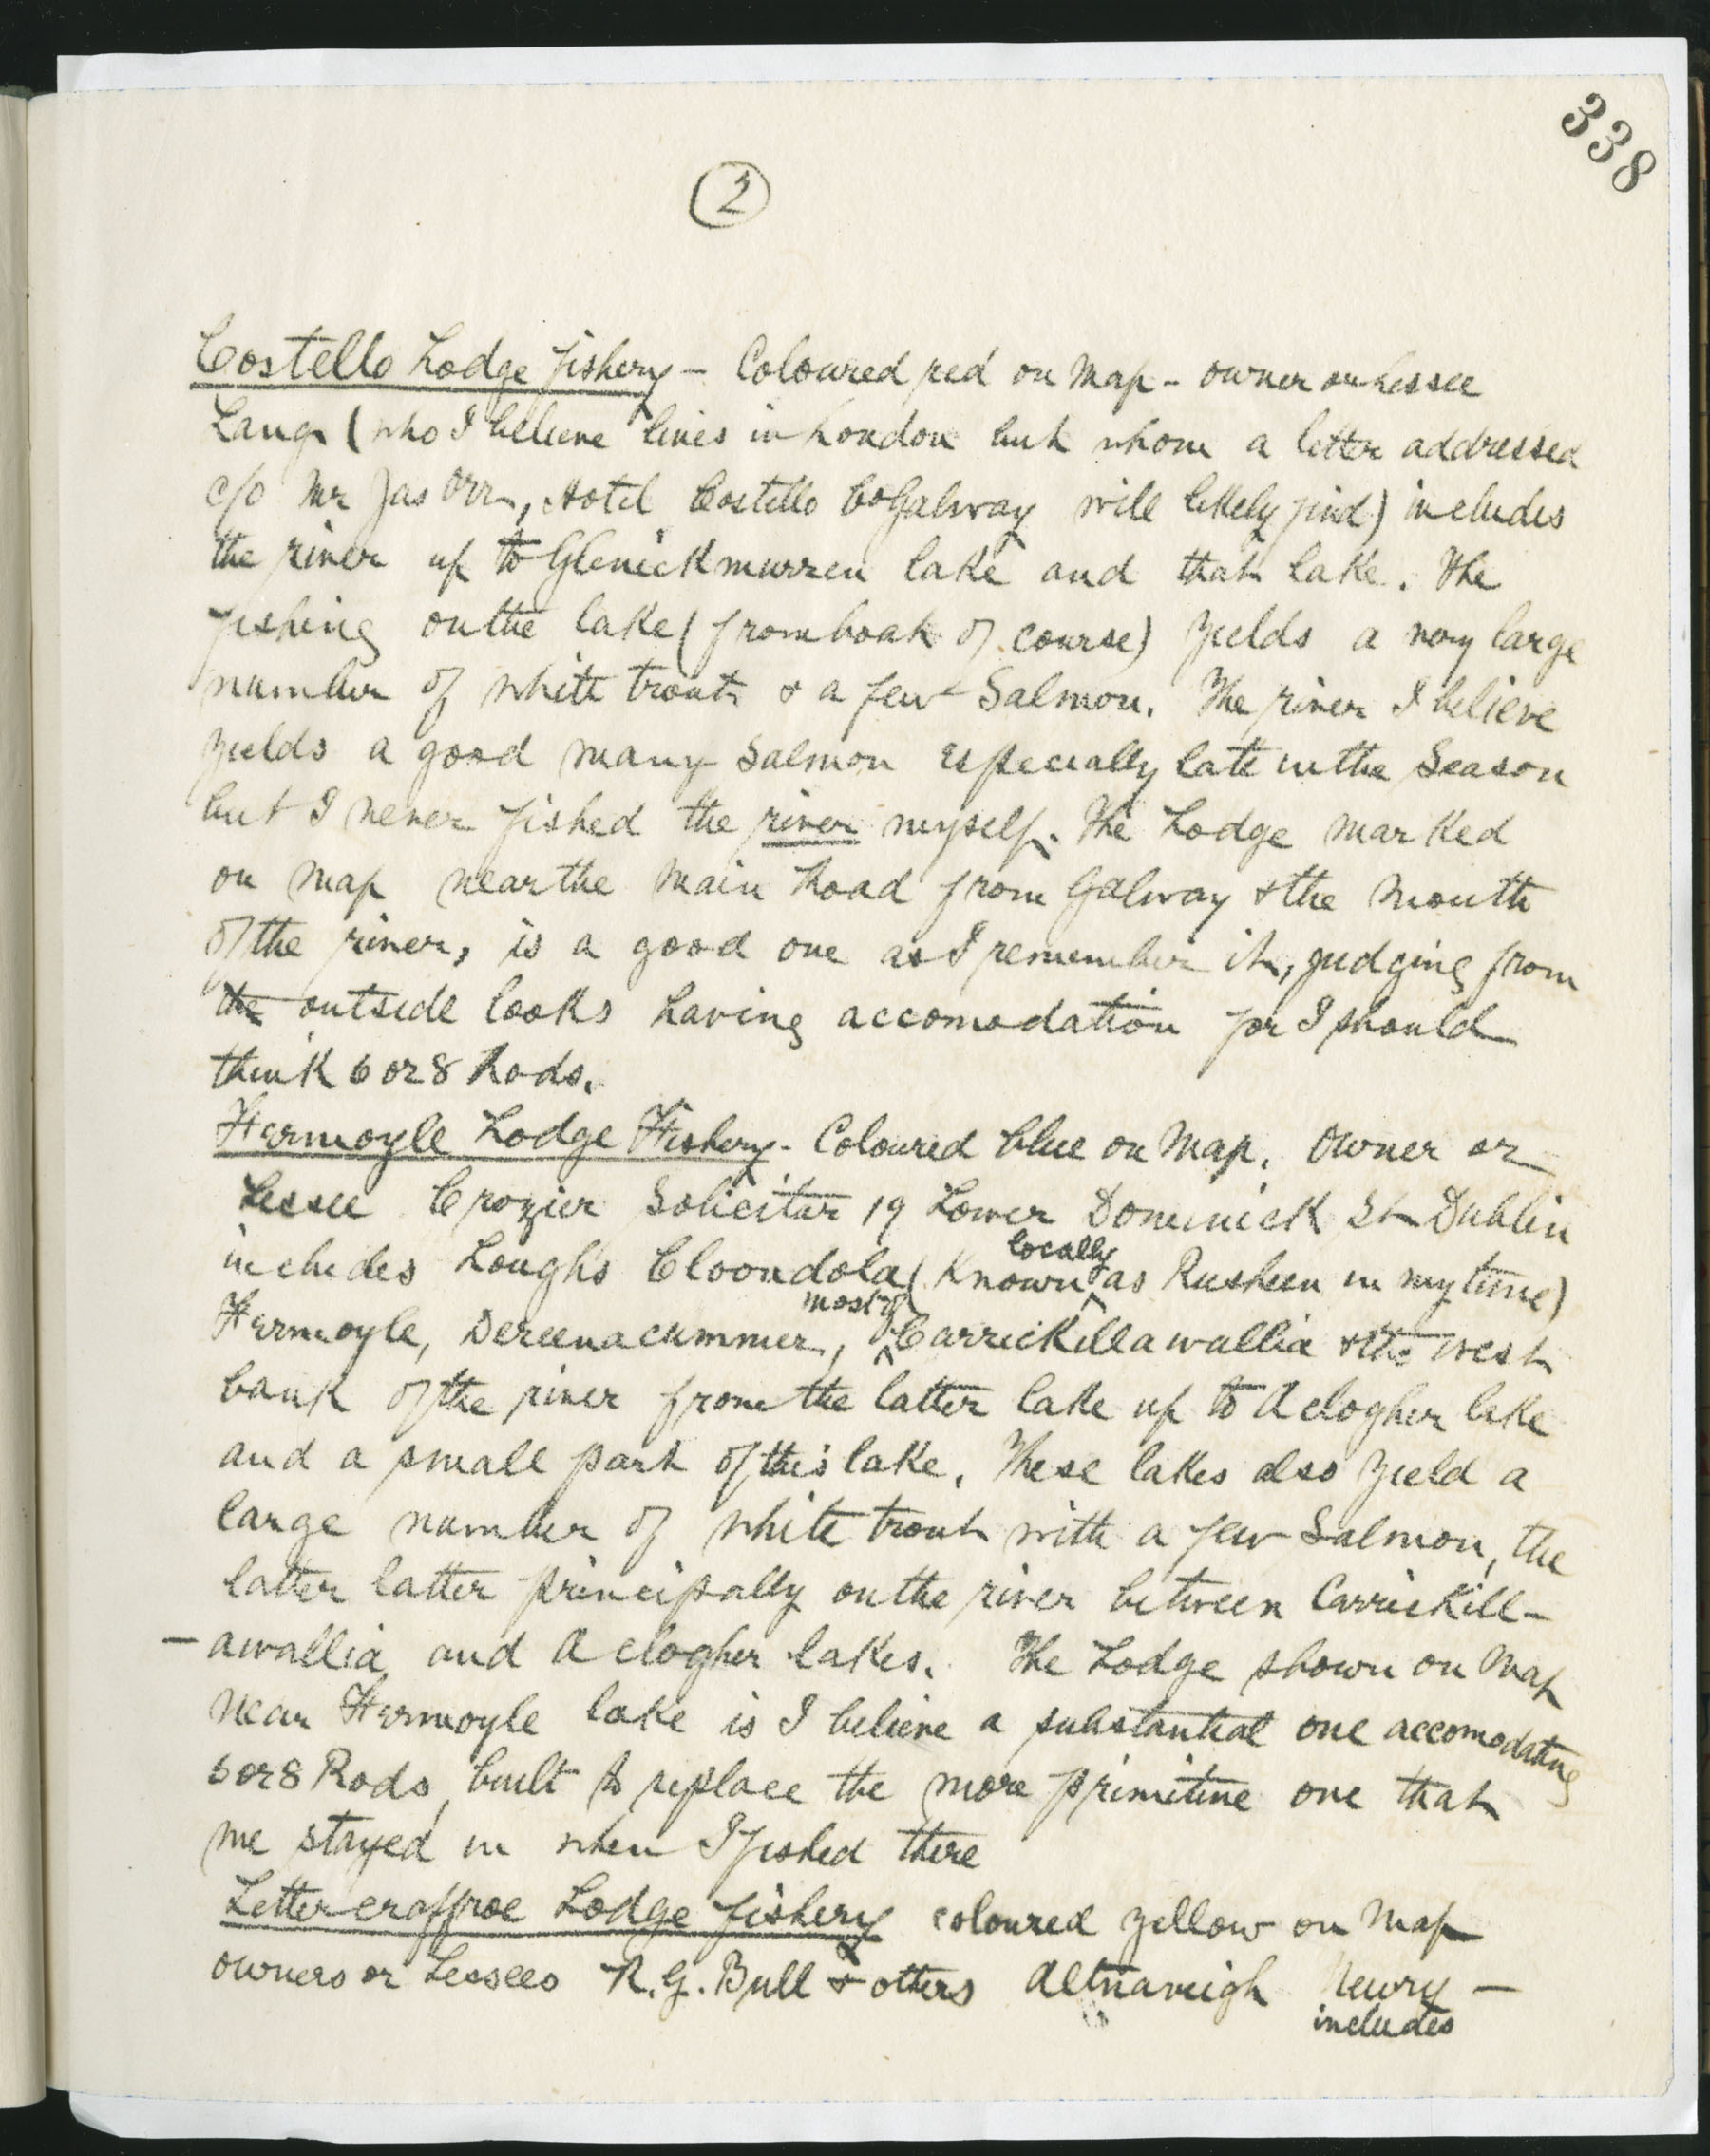 338
2
Costello Lodge fishery - Coloured red on Map - owner or Lessee
Lang (who I believe lives in London but whom a letter addressed
c/o Mr Jas Orr, Hotel Costello Co Galway will likely find) includes
the river up to Glenickmurren lake and that lake. The
fishing on the lake (from boat of course) yields a very large
number of white trout & a few Salmon. The river I believe
yields a good many Salmon especially late in the Season
but I never fished the river myself. The Lodge marked
on map near the Main Road from Galway & the Mouth
of the river, is a good one as I remember it, judging from
the outside looks having accomodation for I should
think 6 or 8 Rods.
Fermoyle Lodge Fishery - Coloured blue on Map. Owner or
Lessee Crozier Solicitor 19 Lower Dominick St Dublin
includes Loughs Cloondola (Known locally as Rusheen in my time)
Fermoyle, Dereenacummer, most of Carrickillawallia & the west
bank of the river from the latter lake up to Aclogher lake
and a small part of this lake. These lakes also yield a
large number of white trout with a few Salmon, the
latter latter principally on the river between Carrickill-
- awallia and Aclogher lakes. The Lodge shown on Map
near Fermoyle lake is I believe a substantial one accomodating
6 or 8 Rods, built to replace the more primitive one that
we stayed in when I fished there
Lettercraffroe Lodge fishery coloured yellow on Map
owners or Lessees R.G. Bull & others Altnaveigh Newry -
includes